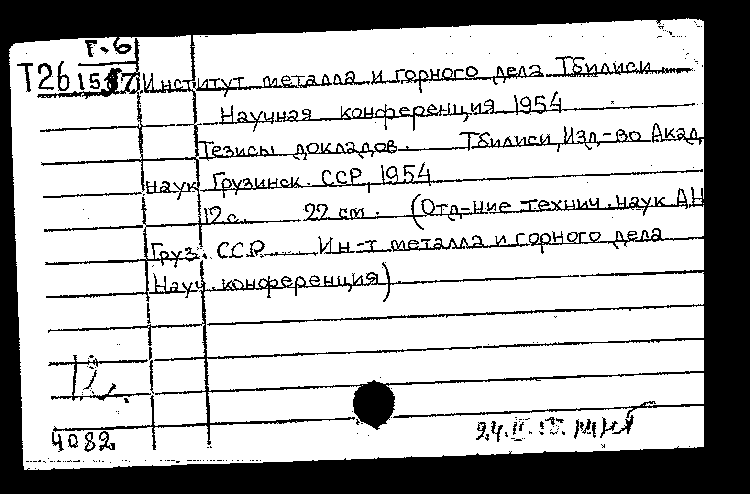 Г.6
Т26 1587 Институт металла и горного дела Тбилиси
Научная конференция 1954
Тезисы докладов. Тбилиси, Изд-во Акад.
наук Грузинск. ССР, 1954
12 с. 22 cm. (Отд-ние технич. наук АН
Груз. ССР. Ин-т металла и горного дела
Науч. конференция)
12
4082
24.